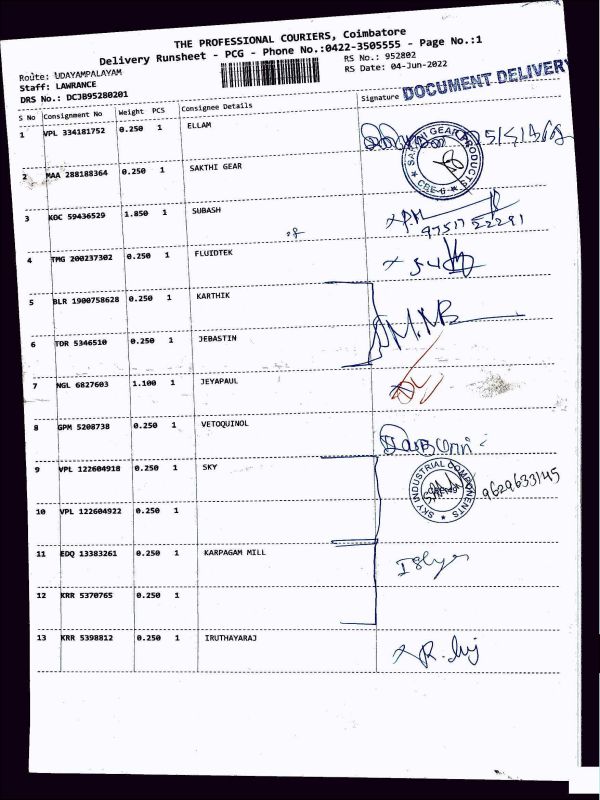 THE PROFESSIONAL COURIERS, Coimbatore
Delivery Runsheet - PCG - Phone No.:0422-3505555 - Page No.:1
Route: UDAYAMPALAYAM
RS No.: 952802
Staff: LAWRANCE
RS Date: 04-Jun-2022
DRS No.: DCJB95280201
DOCUMENT DELIVERY
S No Consignment No Weight PCS Consignee Details Signature
1 VPL 334181752 0.250 1 ELLAM
2 MAA 288188364 0.250 1 SAKTHI GEAR
SAKTHI GEAR PRODUCTS
CBE-6
3 KOC 59436529 1.850 1 SUBASH
9751722291
4 TMG 200237302 0.250 1 FLUIDTEK
5 BLR 1900758628 0.250 1 KARTHIK
6 TDR 5346510 0.250 1 JEBASTIN
7 NGL 6827603 1.100 1 JEYAPAUL
8 GPM 5208738 0.250 1 VETOQUINOL
9 VPL 122604918 0.250 1 SKY
SKY INDUSTRIAL COMPONENTS
9629633145
10 VPL 122604922 0.250 1
11 EDQ 13383261 0.250 1 KARPAGAM MILL
12 KRR 5370765 0.250 1
13 KRR 5398812 0.250 1 IRUTHAYARAJ